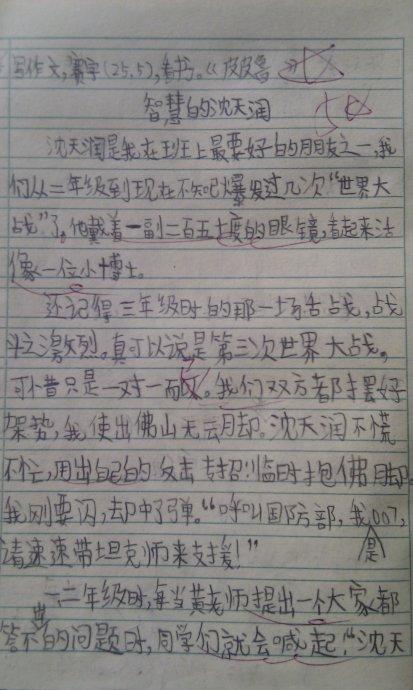 写作文,赛字(25.5),看书。《皮皮鲁
智慧的沈天润
沈天润是我在班上最要好的朋友之一,我
们从二年级到现在不知吧爆发过几次“世界大
战”了。他戴着一副二百五十度的眼镜,看起来活
像一位小博士。
还记得三年级时的那一场舌战,战
斗之激烈。真可以说是第三次世界大战。
可惜只是一对一而已。我们双方都摆好
架势,我使出佛山无云脚。沈天润不慌
不忙,用出自己的反击专招:临时抱佛脚。
我刚要闪,却中了弹。“呼叫国防部,我是007,
请速速带坦克师来支援!”
一、二年级时,每当黄老师提出一个大家都
答不出的问题时,同学们就会喊起:“沈天